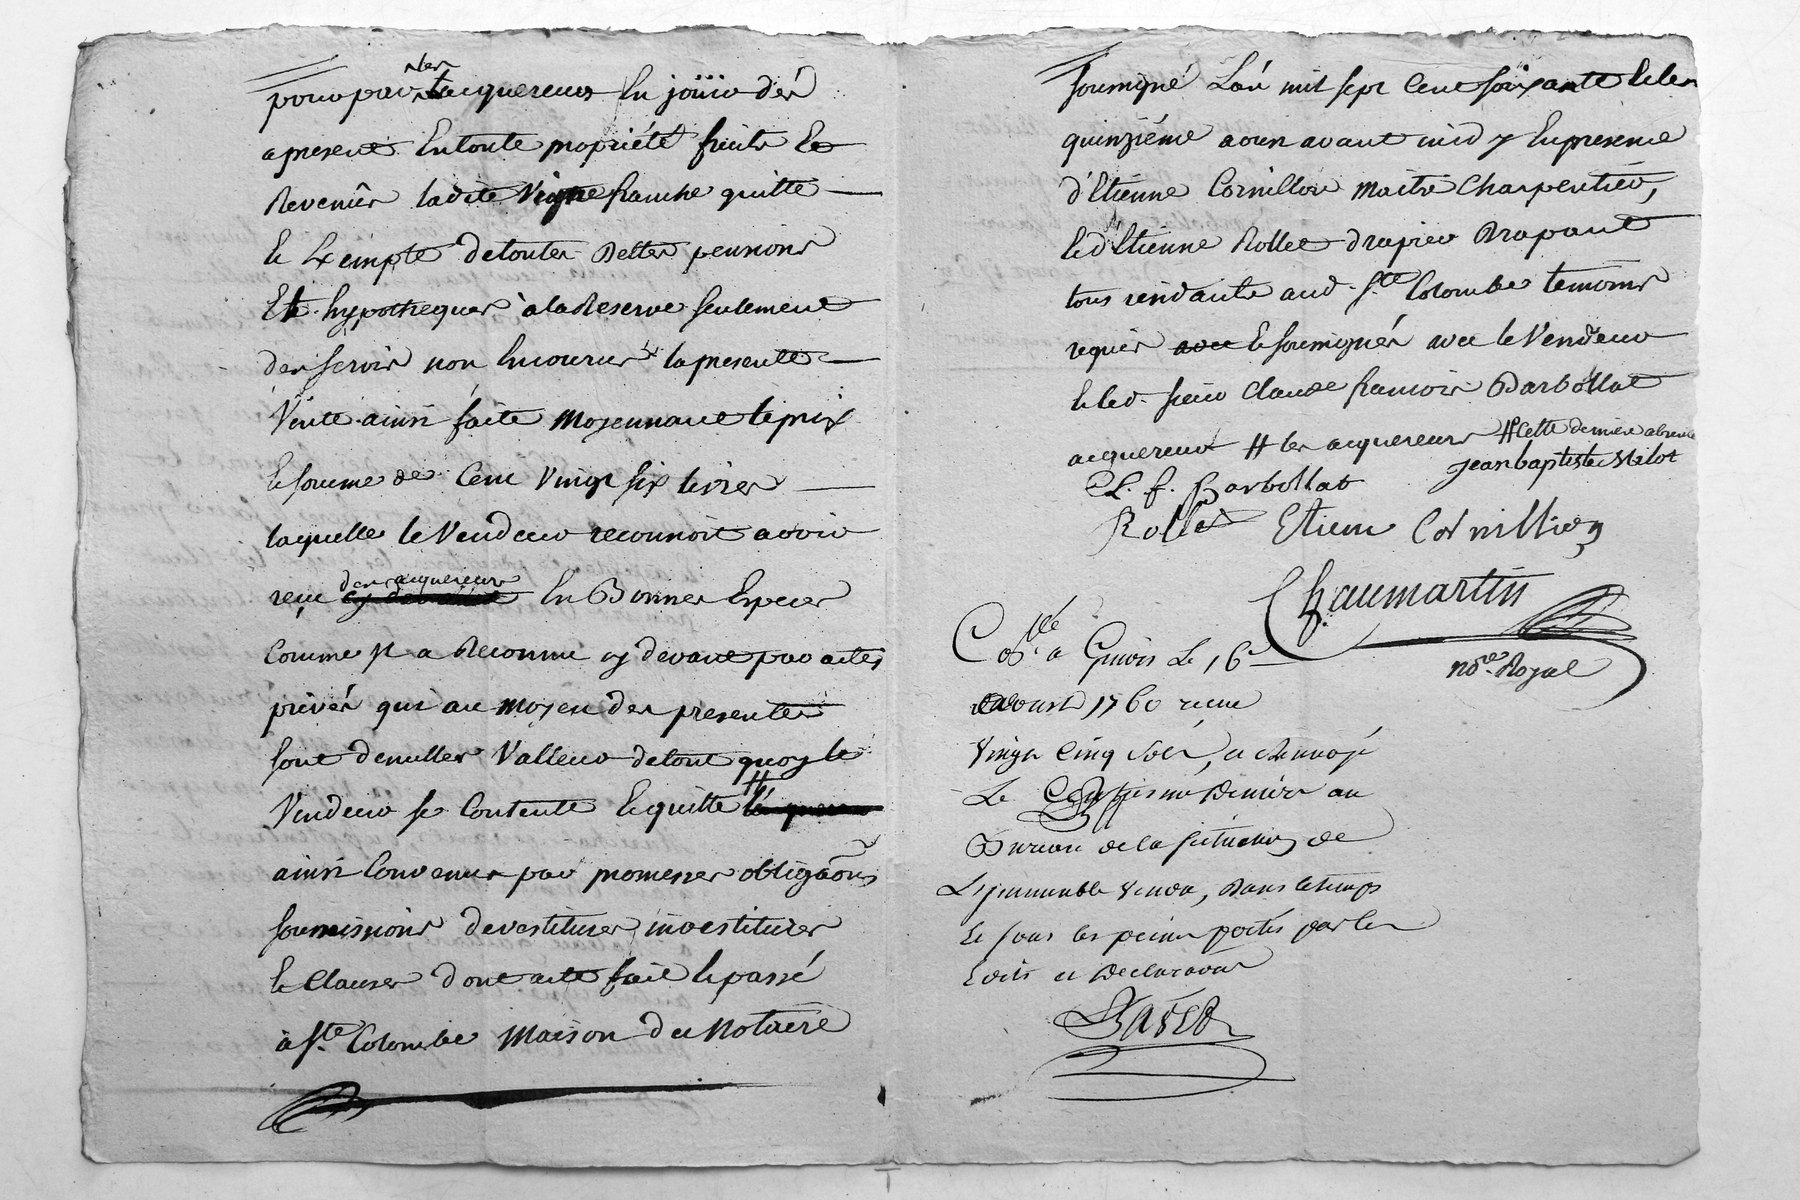 pour par les acquereurs En jouir dés
apresent En toute propriété fruits Et
Revenûs ladite Vigne franche quitte
Et Exempte de toutes Dettes pensions
Et hypotheques à la Reserve seulement
des servis non Encourus la presente
Vente ainsi faite Moyennant le prix
Et somme de Cent Vingt six livres
laquelle le Vendeur reconnoit avoir
reçu des acquereurs En Bonnes Especes
Comme Il a Reconnu cy devant par actes
privés qui au moyen des presentes
sont de nulles Valleur de tout quoy le
Vendeur se Contente Et quitte #
ainsi Convenu par promesses obligaõns
soumissions devestitures investitures
Et Clauses dont acte fait Et passé
à Ste Colombe Maison du Notaire
soussigné L'an mil sept Cent soixante Et le
quinzième aoust avant midy En presence
d'Etienne Cornillon Maitre Charpentier,
Et d'Etienne Rollet drapier Drapant
tous residants aud. Ste Colombe temoins
requis avec Et soussignés avec le Vendeur
Et led. sieur Claude francois Barbollat
acquereur # les acquereurs # Cette derniere absente
Jean baptiste Milot
C. f. Barbollat
Rollet Etiene Cornillion
Chaumartin
nore. Royal
Collé a Givors Le 16e
aoust 1760 recu
Vingt Cinq sols, et Renvoyé
Le Centiesme Denier au
Bureau de la situation de
L'immeuble Vendu, Dans le temps
Et sous les peines portés par les
Edits et Declaraons